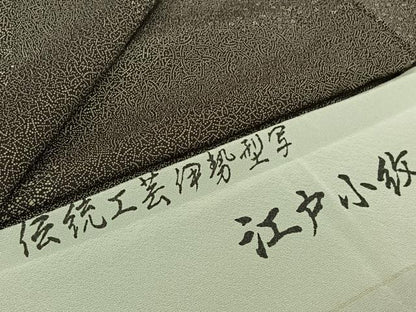 伝統工芸伊勢型写
江戸小紋